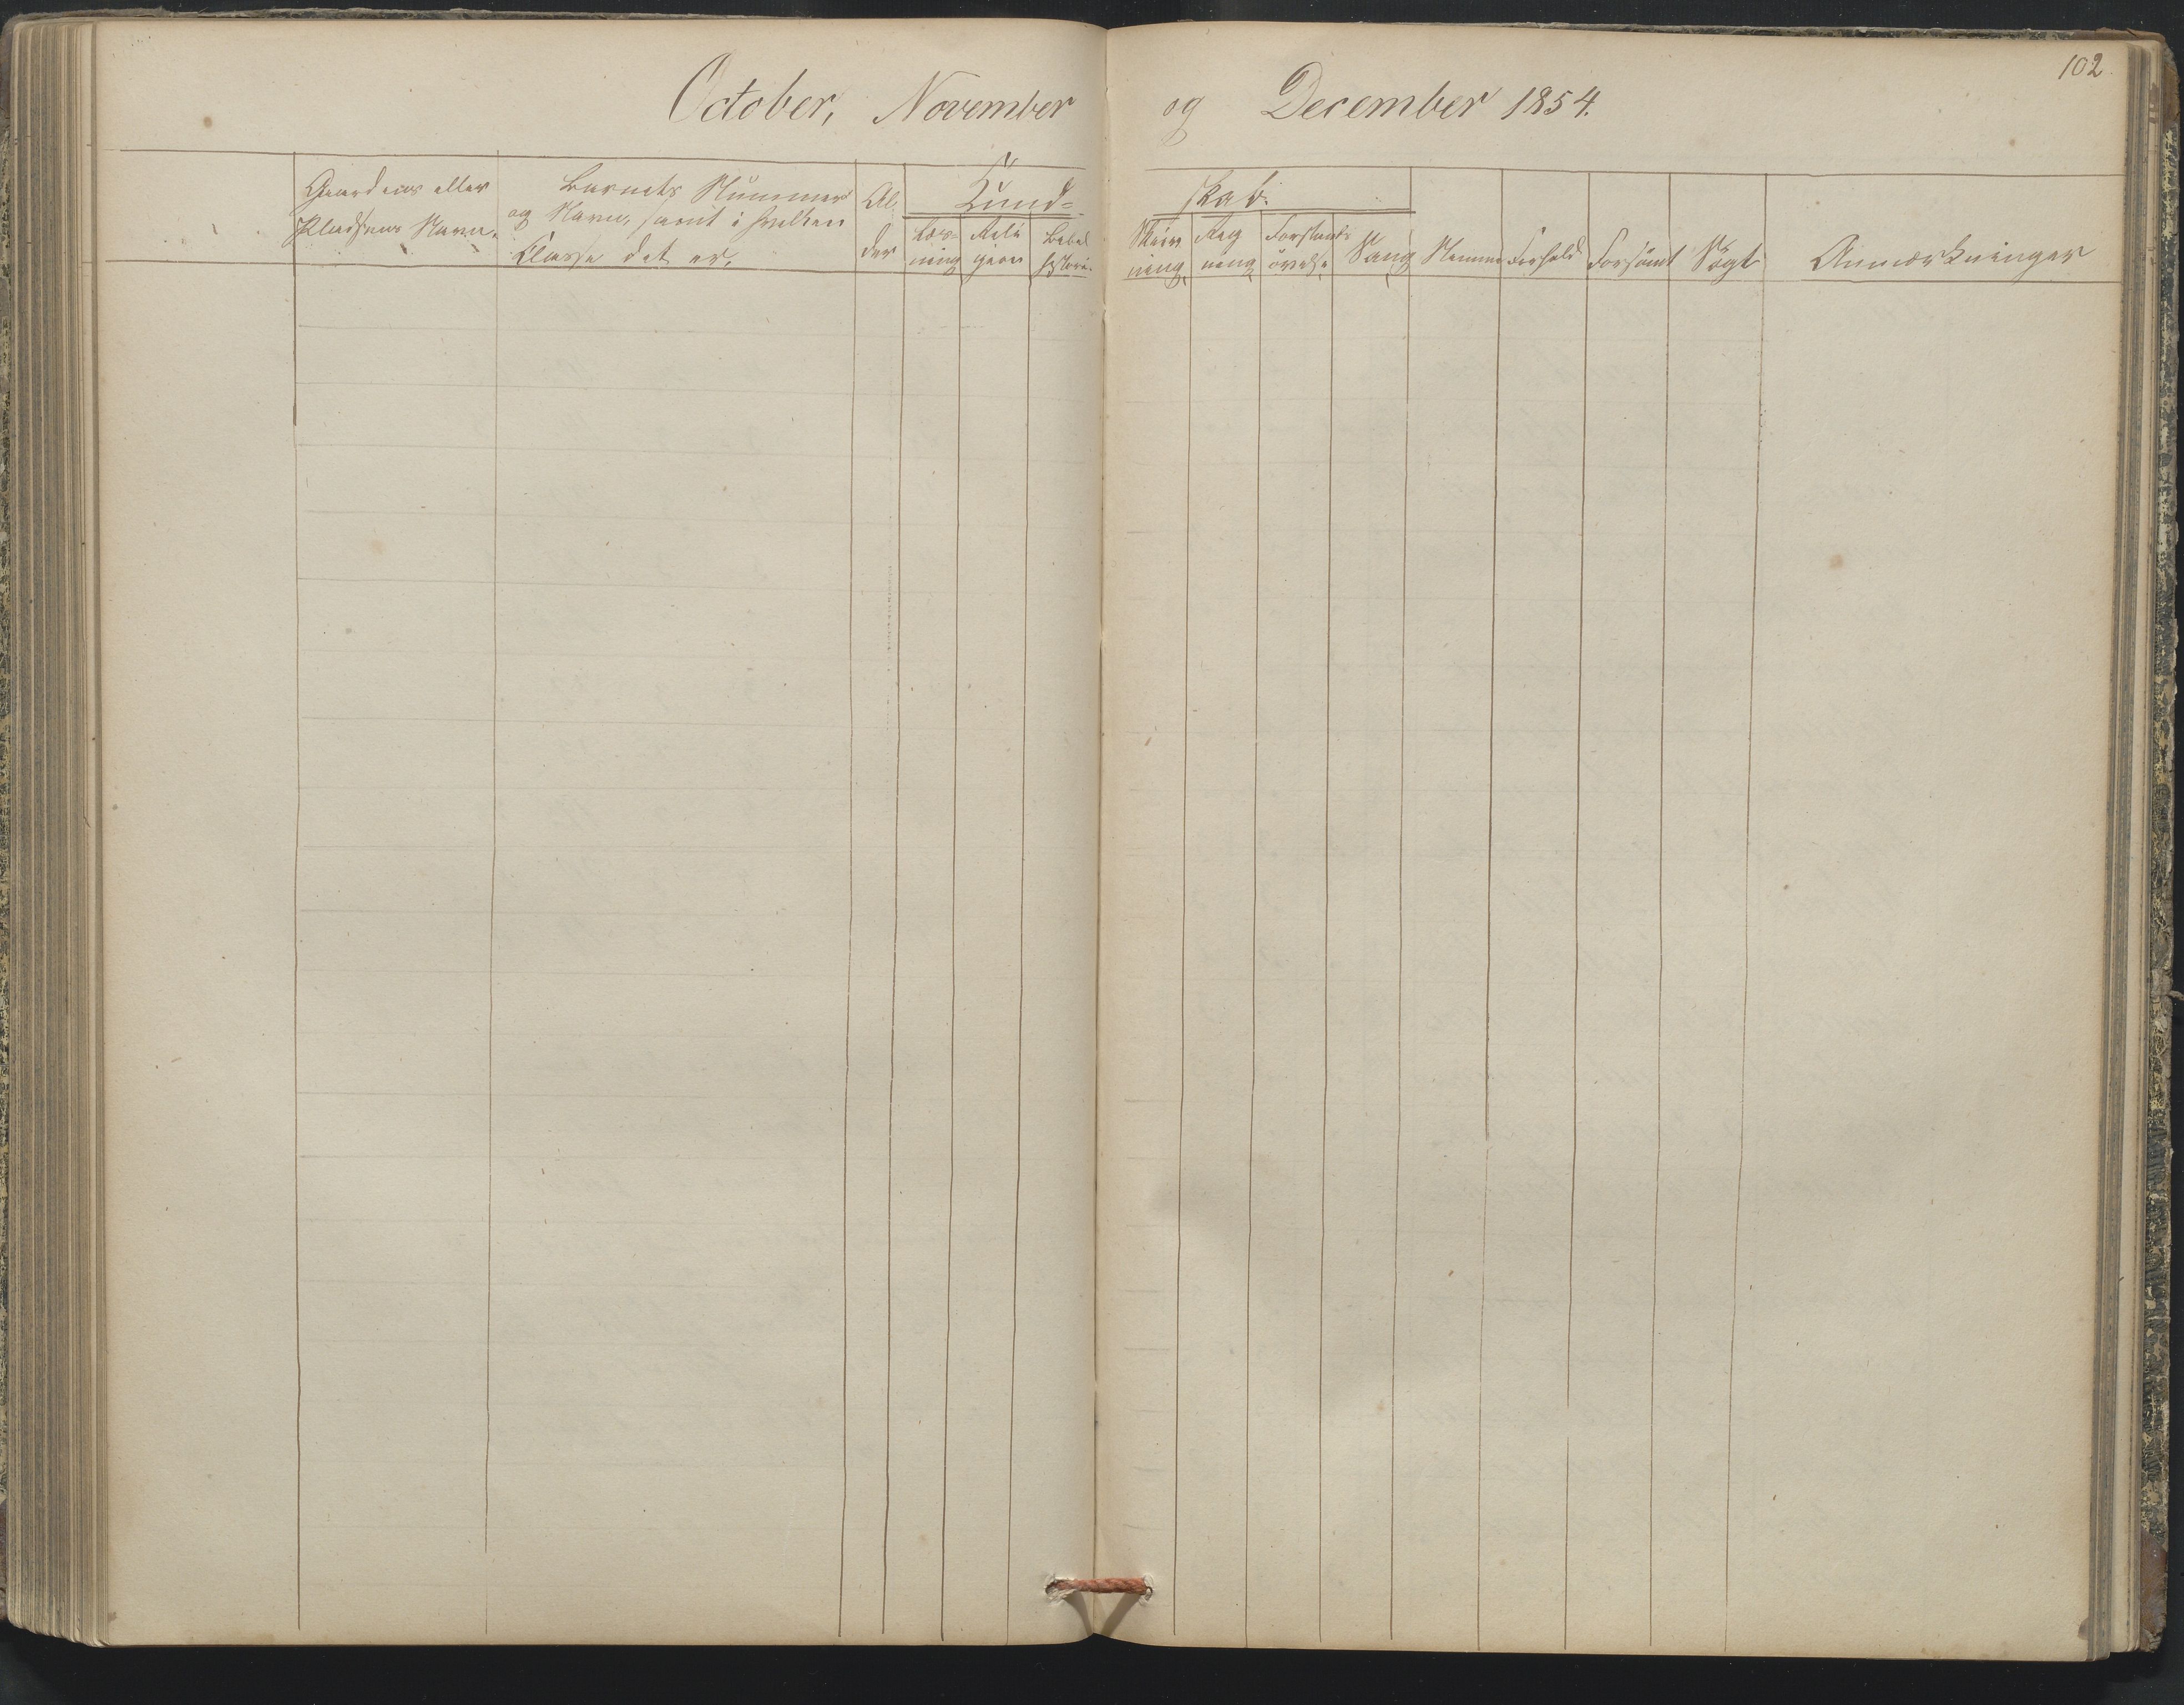 102
October, November og December 1854.
Gaardens eller
Pladsens Navn.
Barnets Nummer
og Navn, samt i hvilken
Classe det er.
Al
der
Kund=
skab.
Læs=
ning
Reli
gion
Bibel
historie.
Skriv
ning
Reg
ning
Forstands
øvelse
Sang
Nemme
Forhold
Forsömt
Sögt
Anmærkninger